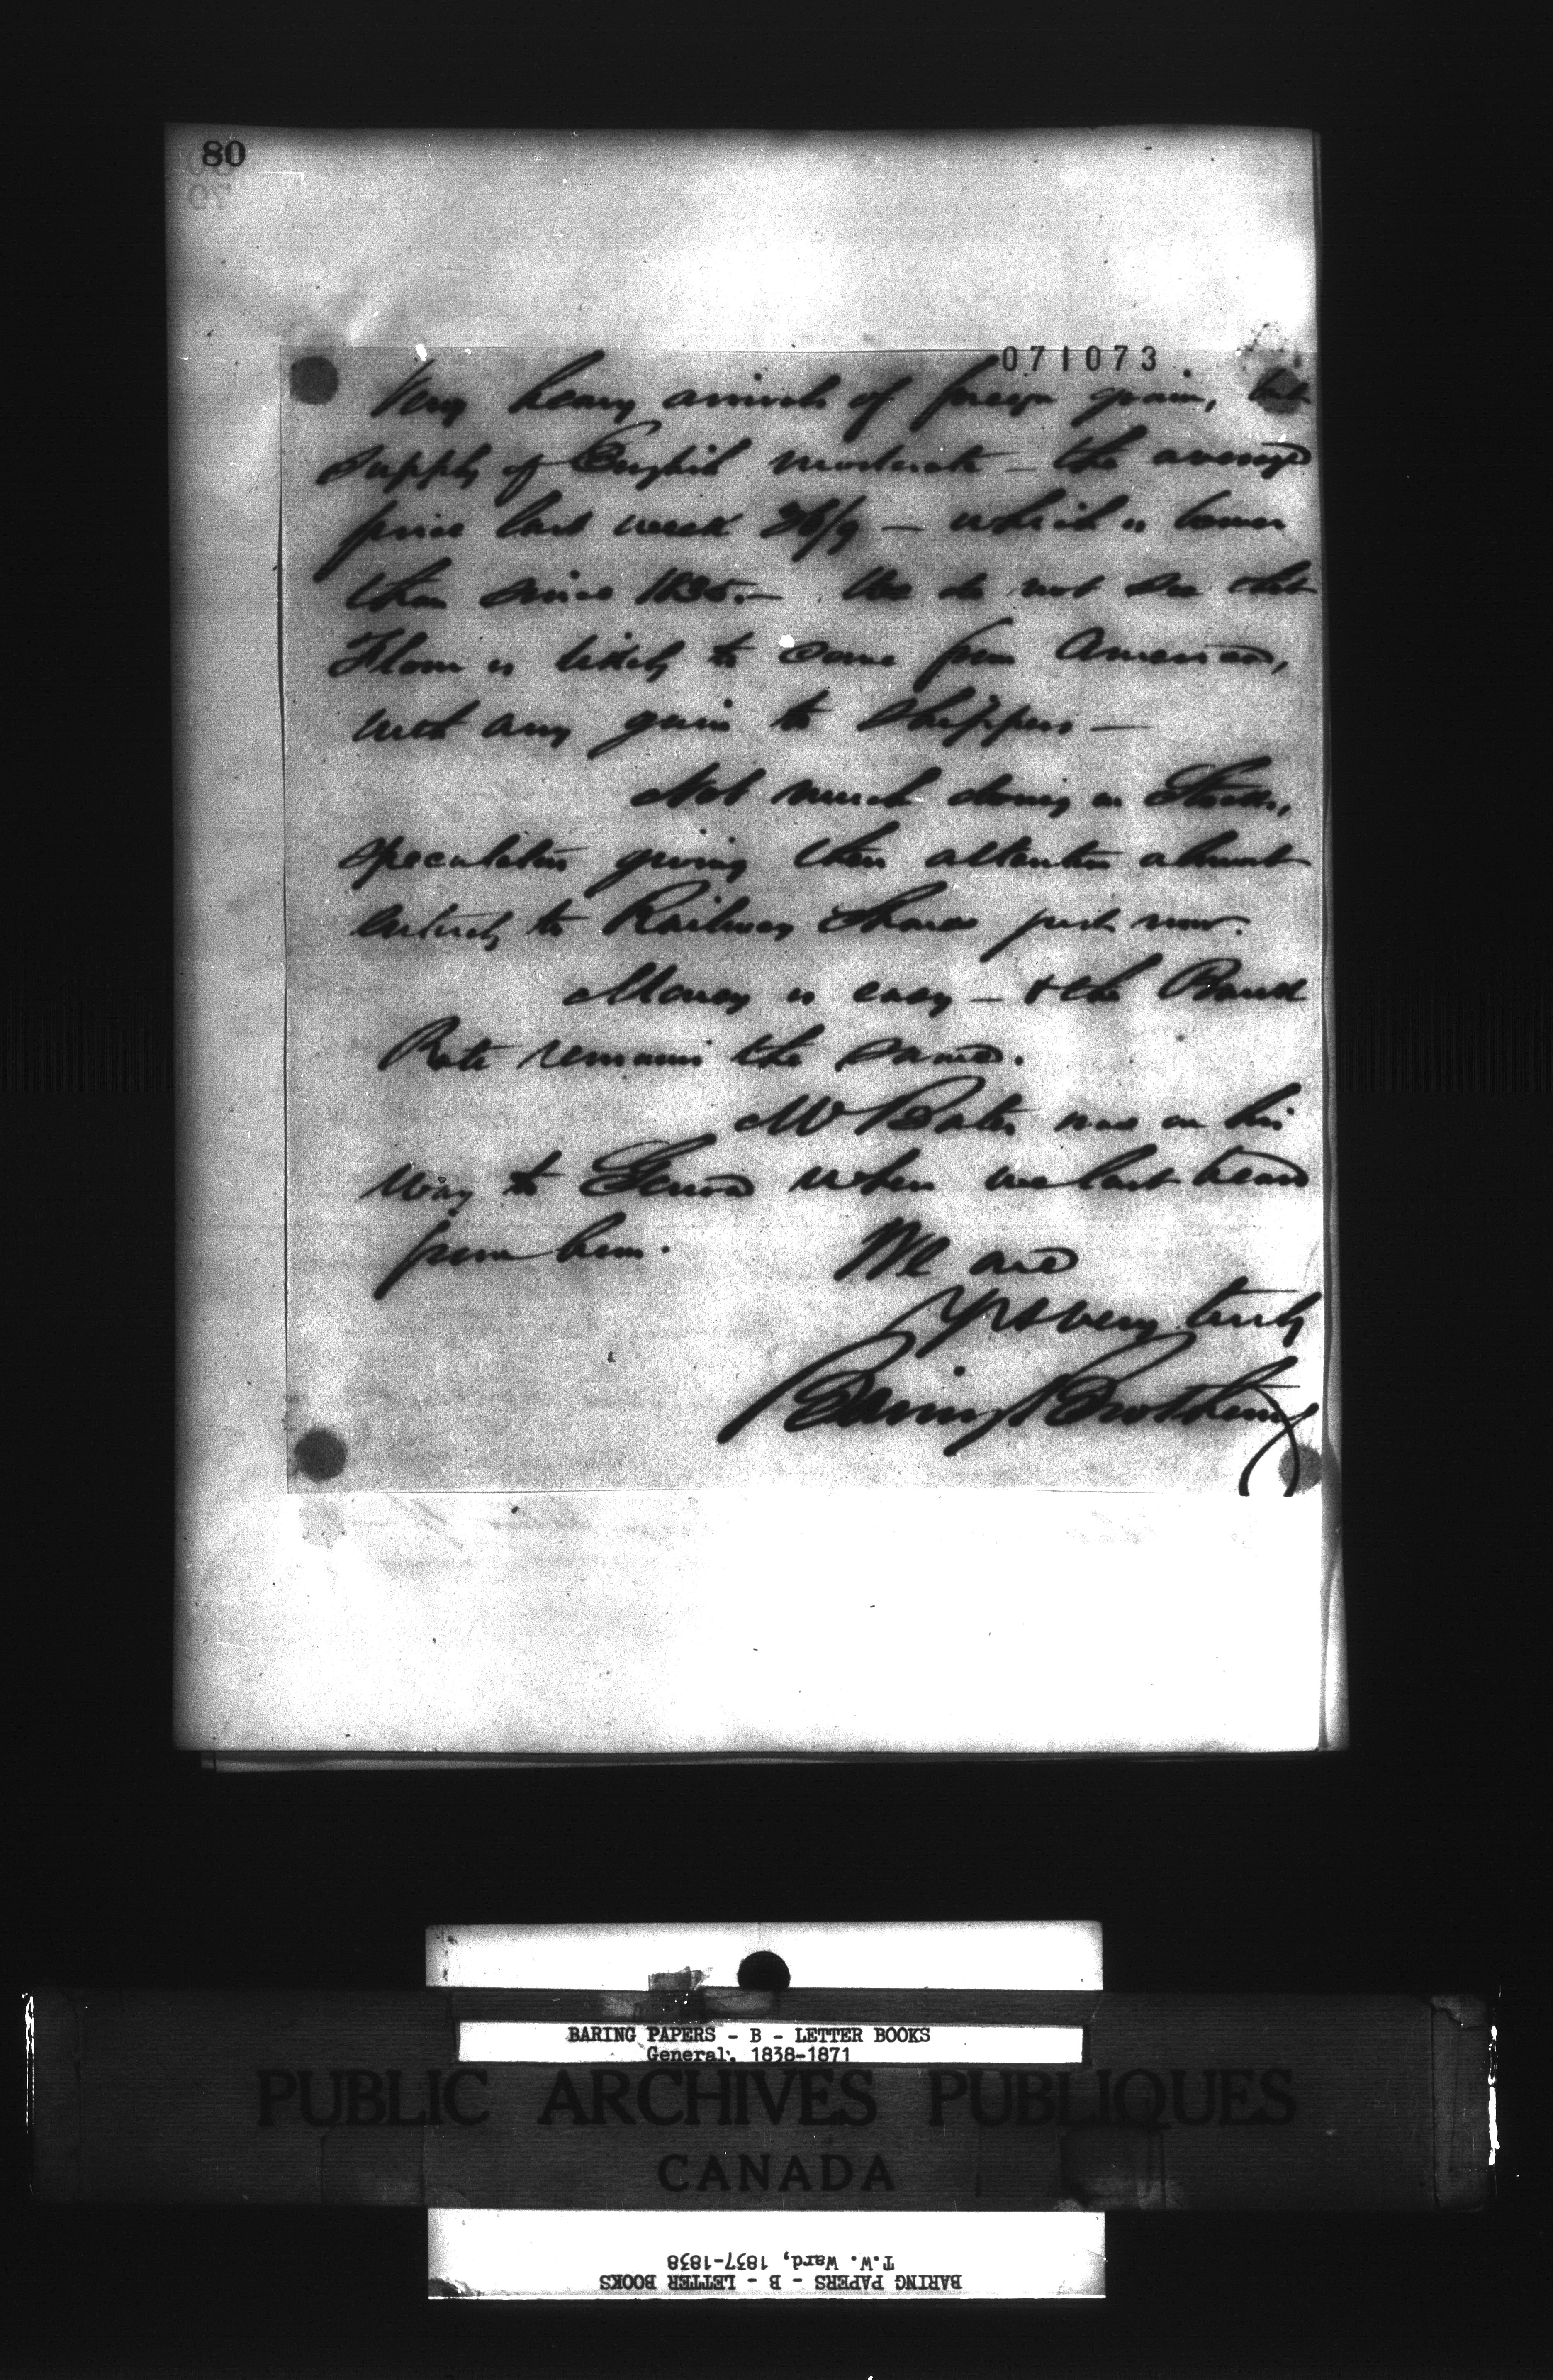 80
071073
Very heavy arrivals of foreign grain, but
supply of English moderate – the average
price last week 36/9 – which is lower
than since 1835. – We do not see that
Flour is likely to come from America,
with any gain to shippers –
Not much doing in Stocks,
speculators giving their attention almost
entirely to Railway Shares just now.
Money is easy – & the Bank
Rate remains the same.
Mr Bates was on his
way to Genoa when we last heard
from him.
We are
Yrs very truly
Baring Brothers
BARING PAPERS - B - LETTER BOOKS
General, 1838-1871
PUBLIC ARCHIVES PUBLIQUES
CANADA
T.W. Ward, 1837-1838
BARING PAPERS - B - LETTER BOOKS